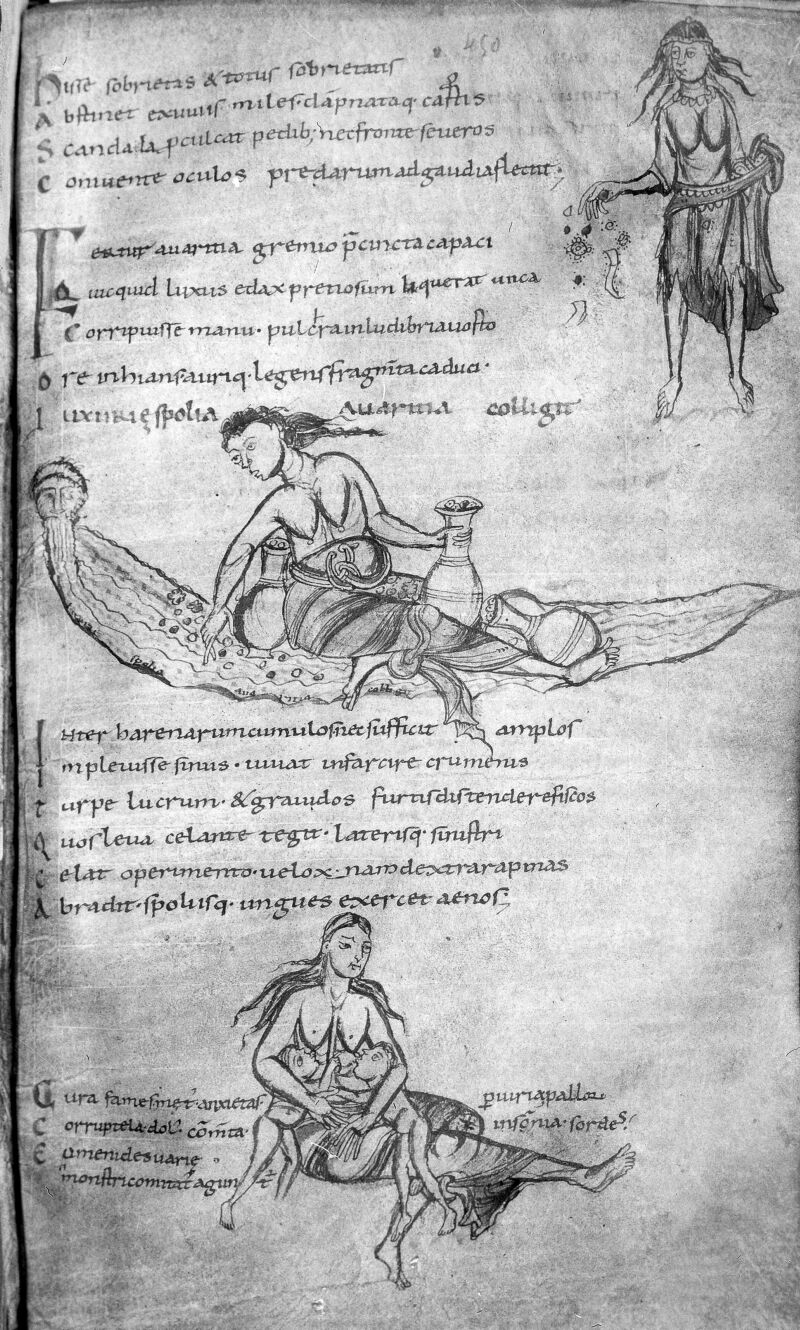 450
hisse sobrietas & totus sobrietatis
Abstinet exuuiis miles dāpnataq. castris
Scandala pculcat pedib; nec fronte seueros
Coniuente oculos predarum ad gaudia flectit.
Fertur auaritia gremio p̄cincta capaci
Quicquid luxus edax pretiosum liquerat unca
Corripuisse manu. pulchra in ludibria uasto
Ore inhians auriq. legens fragm̄ta caduci.
Luxurię spolia auaritia colligit
spolia
colligit
Inter harenarum cumulos nec sufficit amplos
Impleuisse sinus. iuuat infarcire crumenis
turpe lucrum. & grauidos furtis distendere fiscos
Quos leua celante tegit. laterisq. sinistri
celat operimento. uelox. nam dextra rapinas
Abradit. spoliisq. ungues exercet aenos;
Cura fames met' anxietas piuria pallor
Corruptela. dol' cōmīta. insōnia. sordes.
Eumenides uarie
monstri comitat' agunt